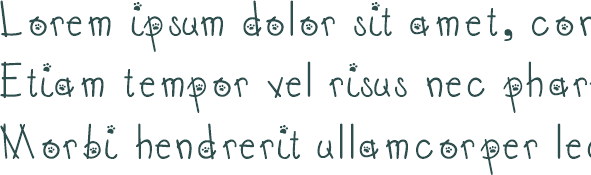 Lorem ipsum dolor sit amet, con
Etiam tempor vel risus nec phar
Morbi hendrerit ullamcorper leo